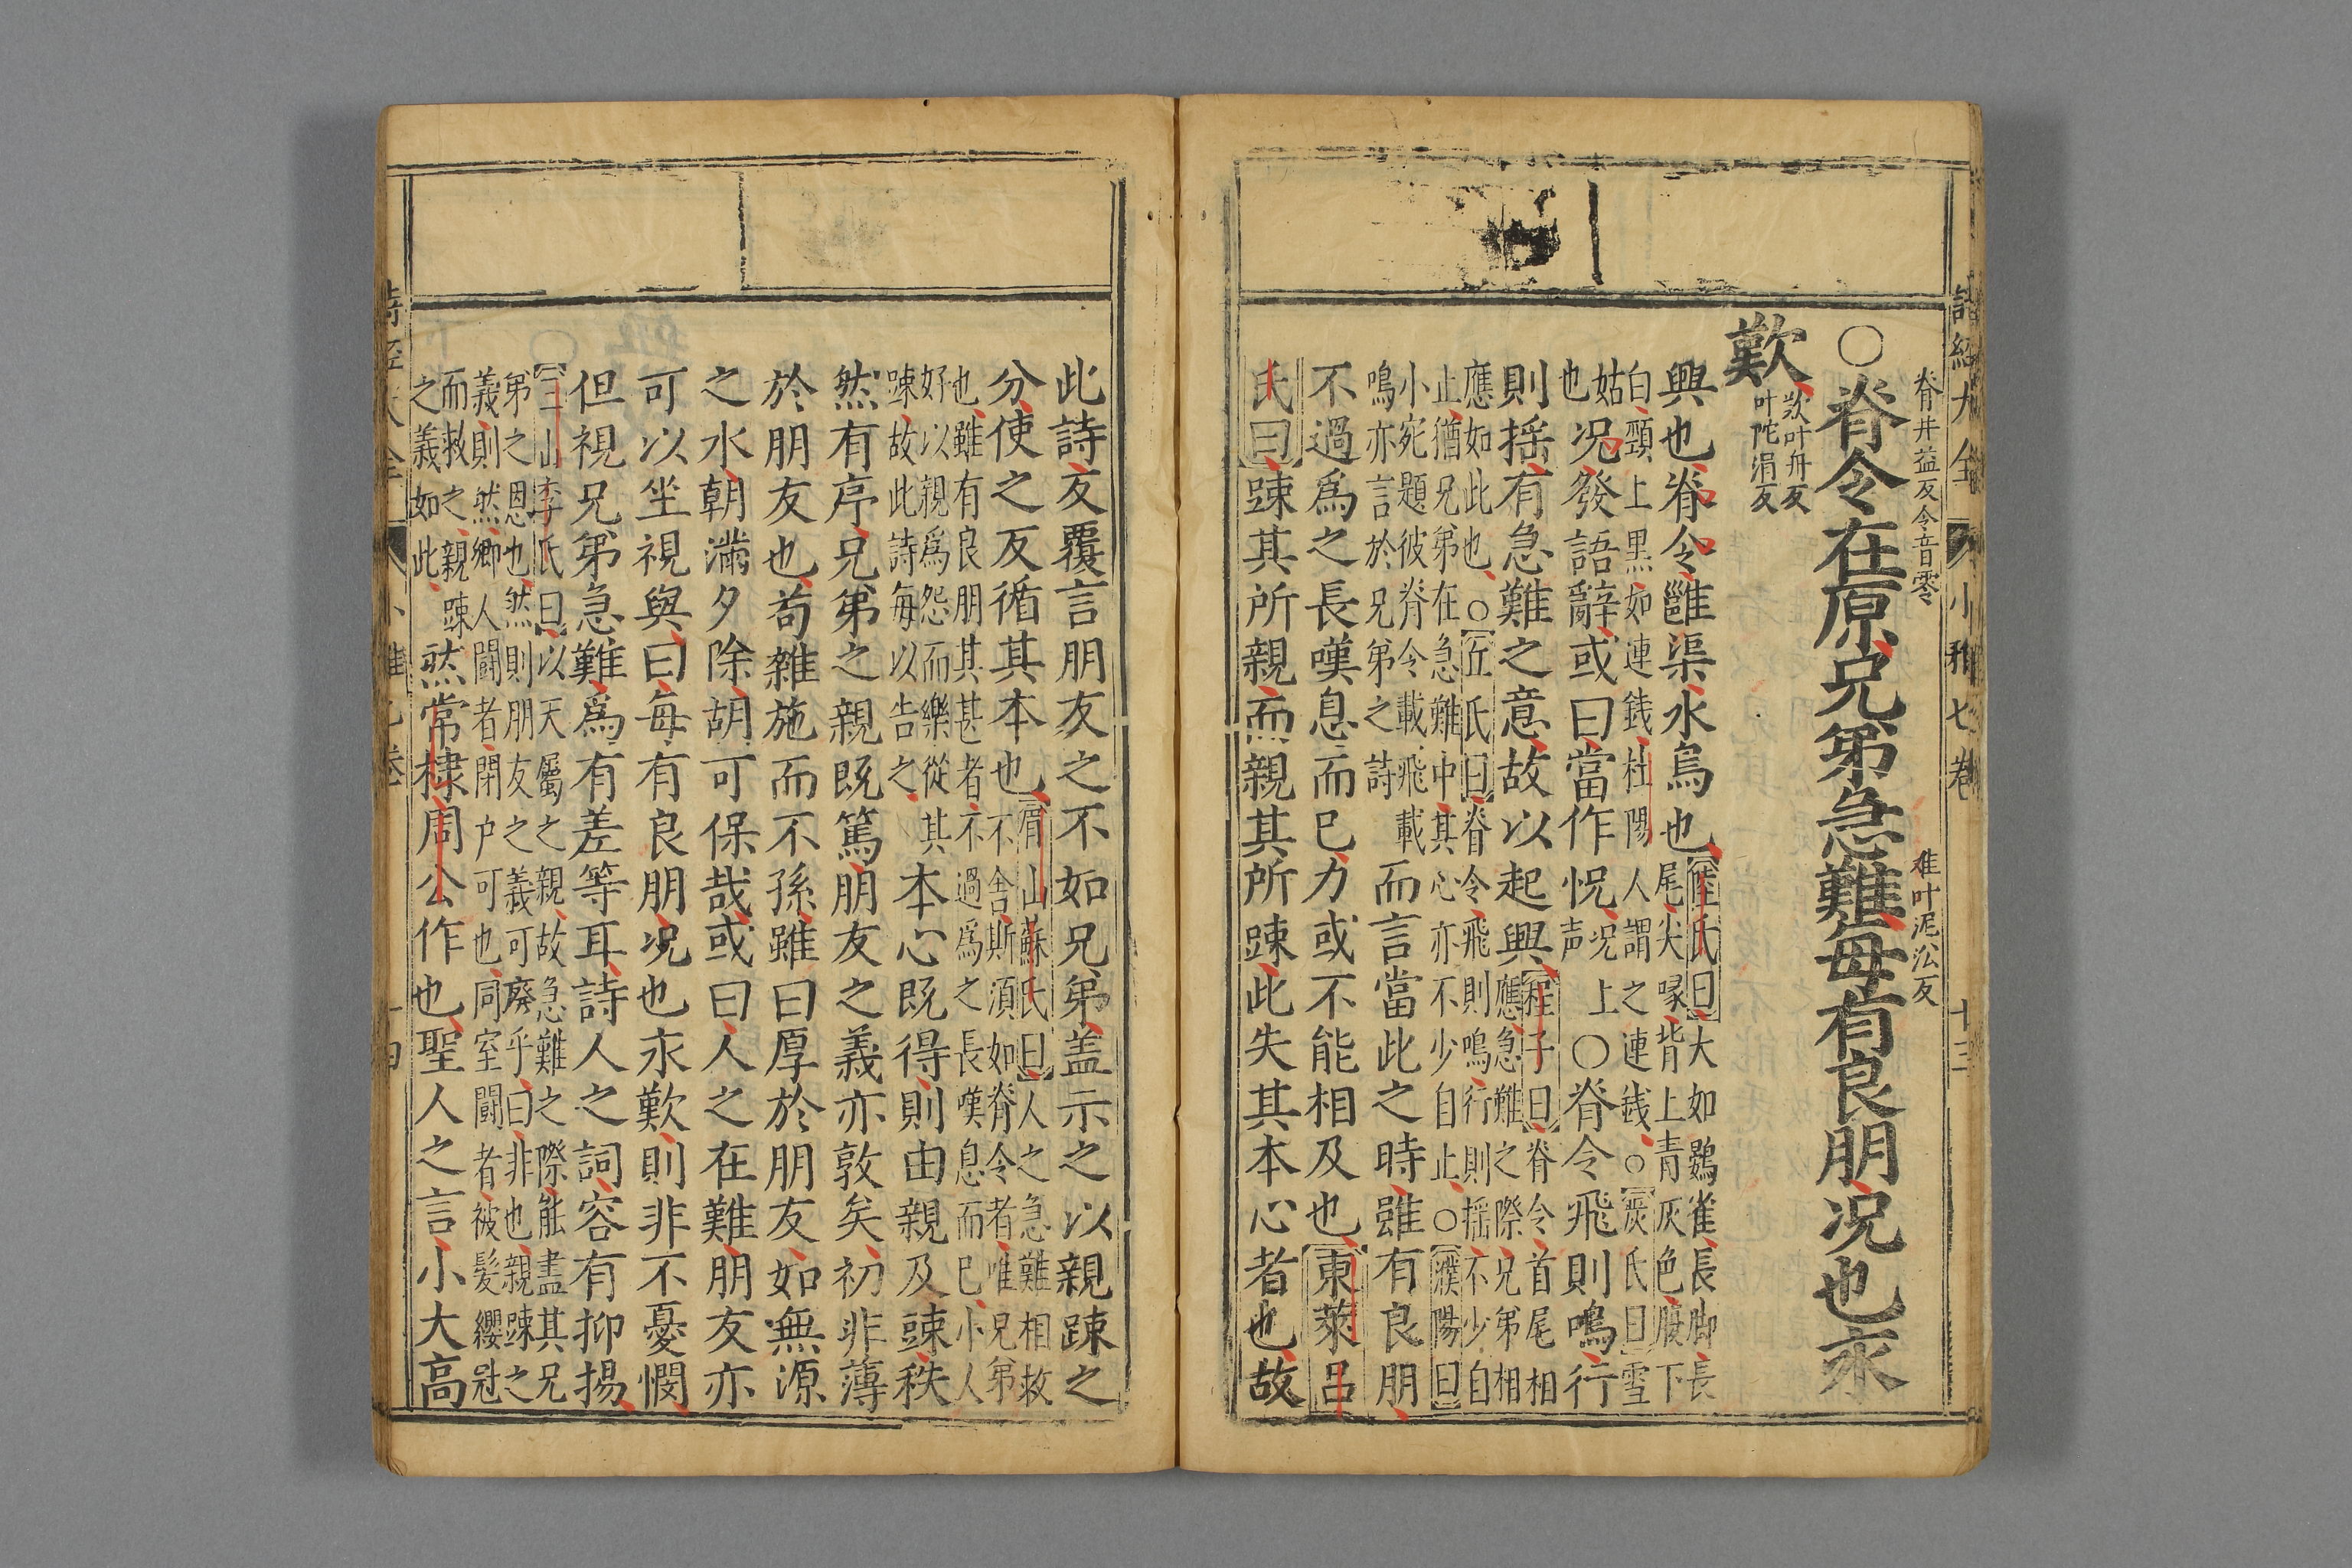 詩經大全 小雅七卷 十三
脊井益反令音零
难叶泥㳂反
○脊令在原兄弟急難每有良朋况也永
歎
歎叶丹反
叶陀涓反
興也脊令雝渠水鳥也
陸氏曰大如鷃雀長脚長
尾尖喙背上青灰色腹下
白頸上黑如連銭杜陽人謂之連銭○嚴氏曰雪
姑
也
况發語辭或曰當作怳
况上
声
○脊令飛則鳴行
則揺有急難之意故以起興
程子曰脊令首尾相
應急難之際兄弟相
應如此也○匠氏曰脊令飛則鳴行則揺不少自
止猶兄弟在急難中其心亦不少自止○濮陽曰
小宛題彼脊令載飛載
鳴亦言於兄弟之詩
而言當此之時雖有良朋
不過爲之長嘆息而已力或不能相及也東萊呂
氏曰踈其所親而親其所踈此失其本心者也故
此詩友覆言朋友之不如兄弟盖示之以親踈之
分使之反循其本也
眉山蘇氏曰人之急難相救
不舍斯須如脊令者唯兄弟
也雖有良朋其甚者不過爲之長嘆息而已小人
好以親爲怨而樂從其
踈故此詩每以告之
本心既得則由親及踈秩
然有序兄弟之親既篤朋友之義亦敦矣初非薄
於朋友也苟雜施而不孫雖曰厚於朋友如無源
之水朝滿夕除胡可保哉或曰人之在難朋友亦
可以坐視與曰每有良朋况也永歎則非不憂憫
但視兄弟急難爲有差等耳詩人之詞容有抑揚
三山李氏曰以天屬之親故急難之際能盡其兄
弟之恩也然則朋友之義可廢乎曰非也親踈之
義則然卿人闘者閉户可也同室闘者被髮纓冠
而救之親踈
之義如此
然常棣周公作也聖人之言小大高